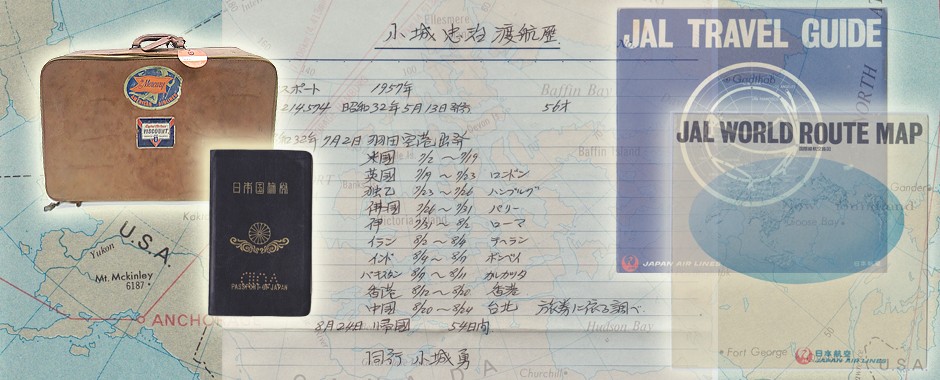 小城 忠治 渡航歴
スポート 1957年
214574 昭和32年5月13日発 56才
32年7月2日 羽田空港出発
米國 7/2 〜 7/19
英國 7/19 〜 7/23 ロンドン
独乙 7/23 〜 7/26 ハンブルグ
佛國 7/26 〜 7/31 パリー
伊 7/31 〜 8/2 ローマ
イラン 8/2 〜 8/4 テヘラン
インド 8/4 〜 8/7 ボンベイ
パキスタン 8/7 〜 8/11 カルカッタ
香港 8/12 〜 8/20 香港
中国 8/20 〜 8/24 台北 旅券に依る調べ
8月24日 帰國 54日間
同行 小城 勇
Mercury
日本国旅券
PASSPORT OF JAPAN
JAL TRAVEL GUIDE
JAPAN AIR LINES
JAL WORLD ROUTE MAP
日本航空
JAPAN AIR LINES
Ellesmere
Baffin Bay
Baffin Island
Godthab
NORTH
Victoria Island
Hudson Bay
Fort George
Churchill
Gander
U.S.A.
Yukon
Mt. Mckinley
6187
ANCHO
U.S.A